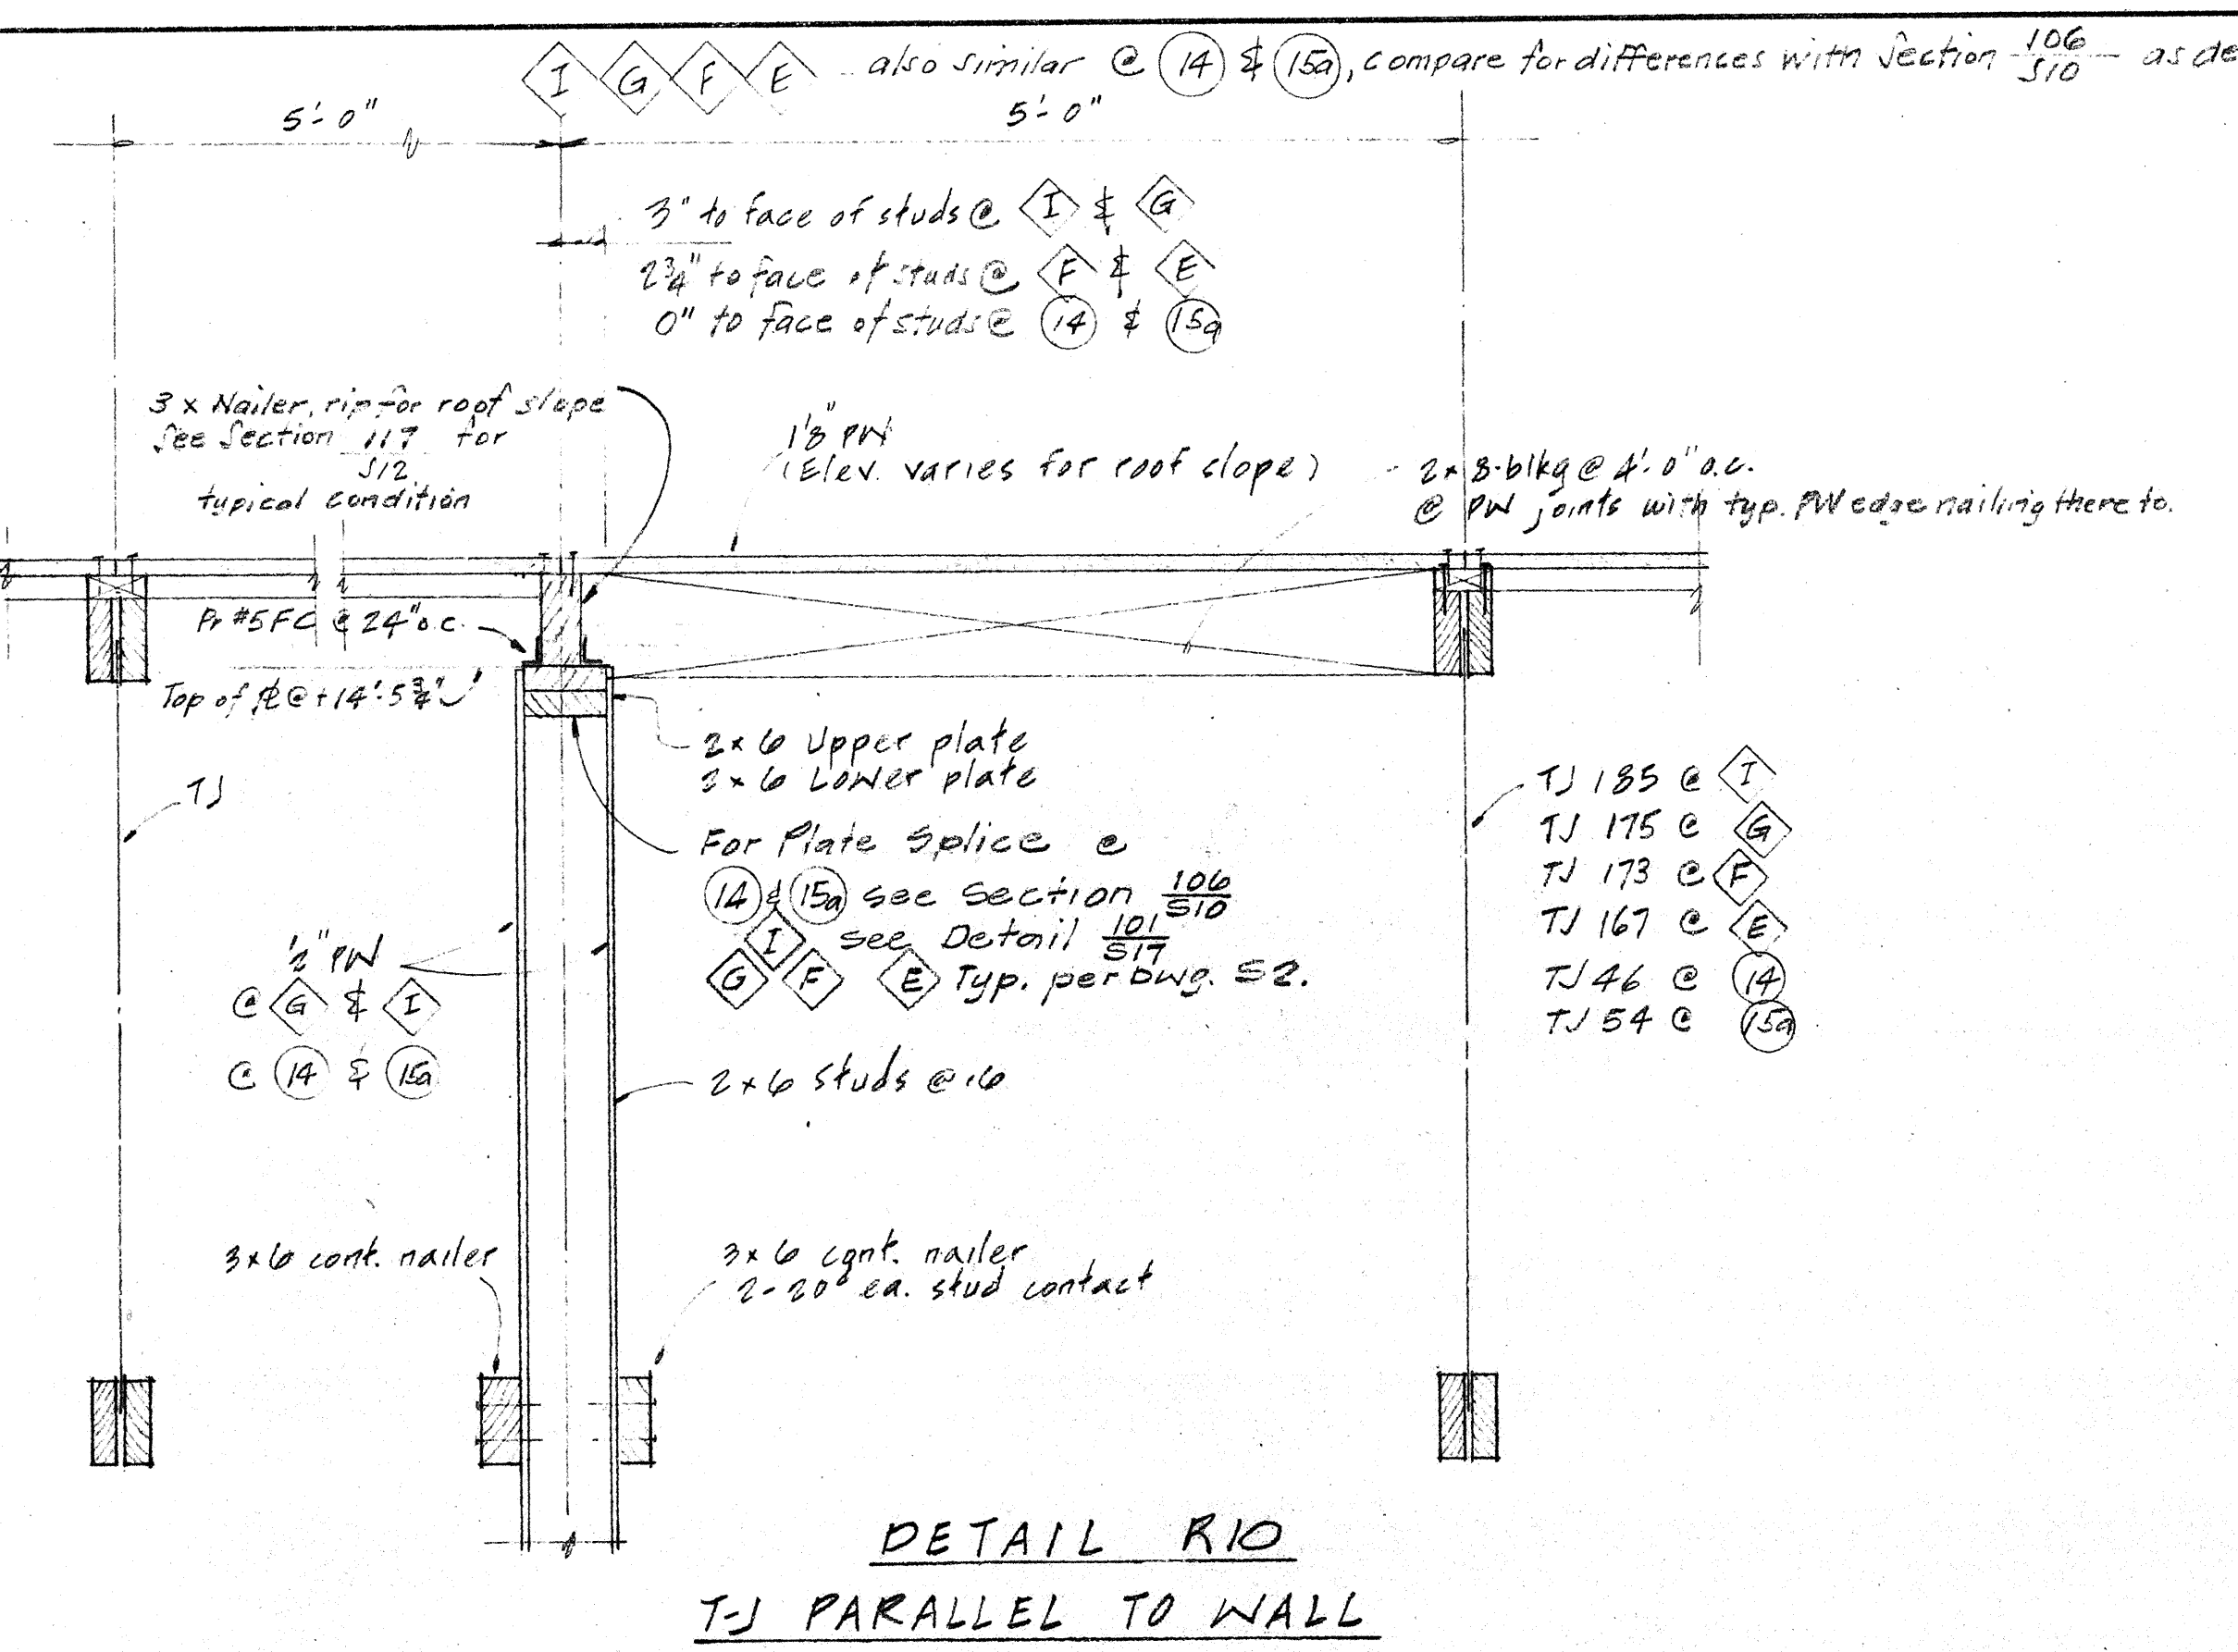 I G F E also similar @ 14 & 15a, compare for differences with Section 106/S10 as de
5'-0"
5'-0"
3" to face of studs @ I & G
2 3/4" to face of studs @ F & E
0" to face of studs @ 14 & 15a
3 x Nailer, rip for roof slope
See Section 117/S12 for
typical condition
1 1/8" PW
(Elev. varies for roof slope)
2x8 blkg @ 4'-0" o.c.
@ PW joints with typ. PW edge nailing there to.
Pr #5 FC @ 24" o.c.
Top of PL @ +14'-5 3/4"
2x6 Upper plate
2x6 Lower plate
TJ
For Plate Splice @
14 & 15a see Section 106/S10
I see Detail 101/S17
G F E Typ. per Dwg. S2.
TJ 185 @ I
TJ 175 @ G
TJ 173 @ F
TJ 167 @ E
TJ 46 @ 14
TJ 54 @ 15a
1/2" PW
@ G & I
@ 14 & 15a
2x6 studs @ 16
3x6 cont. nailer
3x6 cont. nailer
2-20d ea. stud contact
DETAIL R10
T-J PARALLEL TO WALL